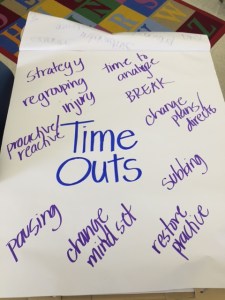 strategy
regrouping
injury
time to
analyze
BREAK
change
plans/
directs
proactive/
reactive
Time
Outs
subbing
pausing
change
mind set
restore
practice